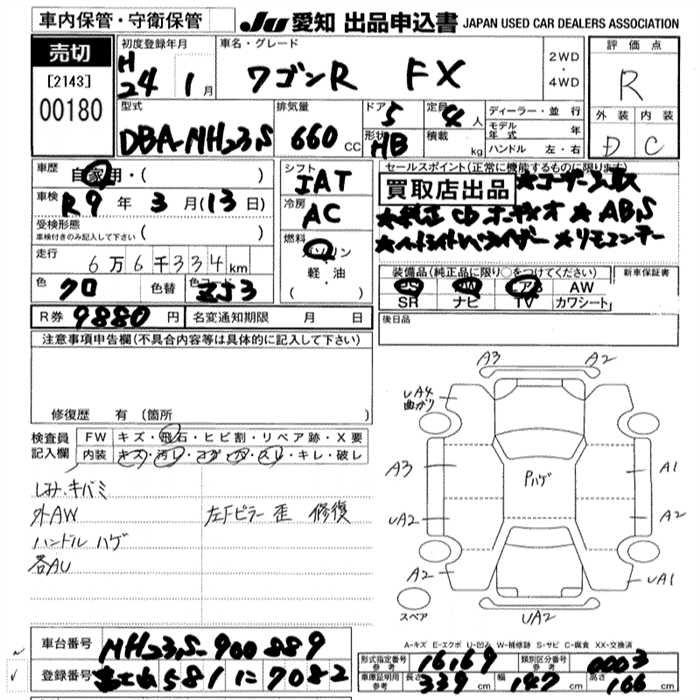 車内保管・守衛保管
JU 愛知 出品申込書 JAPAN USED CAR DEALERS ASSOCIATION
売切
[2143]
00180
初度登録年月
H 24 1月
車名・グレード
ワゴンR FX
2WD
・
4WD
評価点
R
外装 内装
D C
型式
DBA-MH23S
排気量
660 cc
ドア 5
形状 HB
定員 4人
積載 kg
ディーラー・並行
モデル年式 年
ハンドル 左・右
車歴
自家用・( )
車検
R9年3月(13日)
受検形態
車検付きのみ記入して下さい ( )
走行
6万6千334km
色 クロ 色替 ZJ3
シフト
IAT
冷房
AC
燃料
ガソリン
軽・油
( )
セールスポイント(正常に機能するものに限ります)
買取店出品
★ABS
装備品(純正品に限り○をつけてください)
新車保証書
PS PW エアB AW
SR ナビ TV カワシート
後日品
R券 9880円 名変通知期限 月 日
注意事項申告欄(不具合内容等は具体的に記入して下さい)
修復歴 有(箇所
検査員
記入欄
FW キズ・飛石・ヒビ割・リペア跡・X要
内装 キズ・汚レ・コゲ・アナ・スレ・キレ・破レ
しみ・キバミ
外AW
左Fピラー 歪 修復
ハンドル ハゲ
各AU
A3 A2
UA4
曲がり
A3
Pハゲ
A1
UA2
A2
A2
UA1
UA2
スペア
A-キズ E-エクボ U-凹み W-補修跡 S-サビ C-腐食 XX-交換済
車台番号 MH23S-900889
登録番号 581 に 7082
形式指定番号 参考 16169
類別区分番号 参考 0003
車庫証明用 参考
長さ 339 cm 幅 147 cm 高さ 166 cm